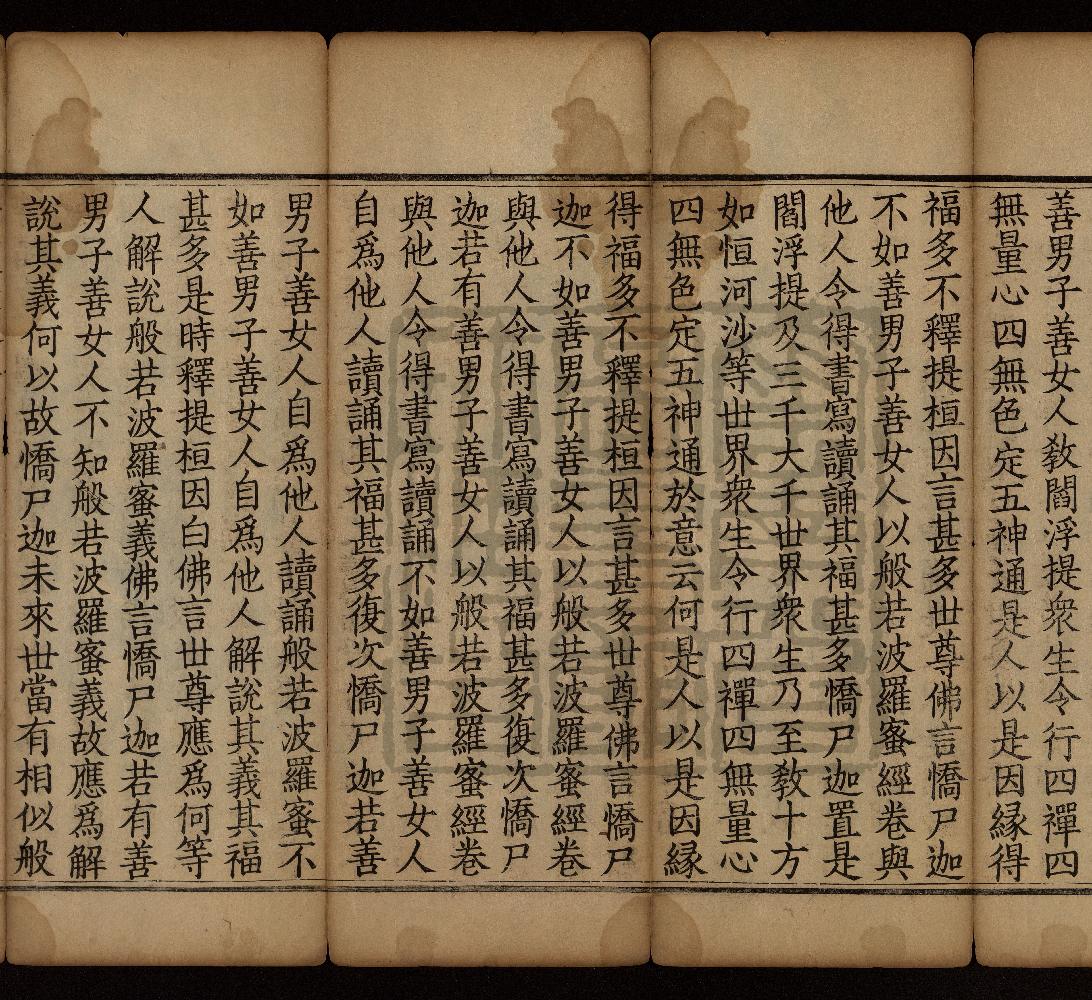 善男子善女人敎閻浮提衆生令行四禪四
無量心四無色定五神通是人以是因緣得
福多不釋提桓因言甚多世尊佛言憍尸迦
不如善男子善女人以般若波羅蜜經卷與
他人令得書寫讀誦其福甚多憍尸迦置是
閻浮提及三千大千世界衆生乃至敎十方
如恒河沙等世界衆生令行四禪四無量心
四無色定五神通於意云何是人以是因緣
得福多不釋提桓因言甚多世尊佛言憍尸
迦不如善男子善女人以般若波羅蜜經卷
與他人令得書寫讀誦其福甚多復次憍尸
迦若有善男子善女人以般若波羅蜜經卷
與他人令得書寫讀誦不如善男子善女人
自爲他人讀誦其福甚多復次憍尸迦若善
男子善女人自爲他人讀誦般若波羅蜜不
如善男子善女人自爲他人解說其義其福
甚多是時釋提桓因白佛言世尊應爲何等
人解說般若波羅蜜義佛言憍尸迦若有善
男子善女人不知般若波羅蜜義故應爲解
說其義何以故憍尸迦未來世當有相似般